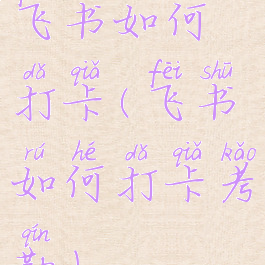 飞书如何
dǎ qiǎ fēi shū
打卡(飞书
rú hé dǎ qiǎ kǎo
如何打卡考
qín
勤)